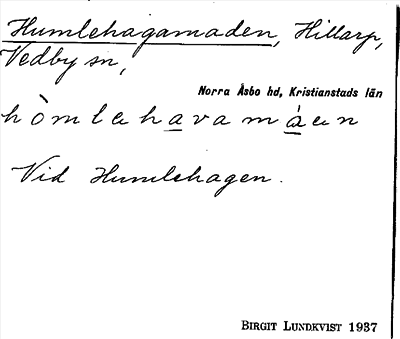 Humlehagamaden, Hillarp,
Vedby sn,
Norra Åsbo hd, Kristianstads län
hòmlehavamàen
Vid Humlehagen.
BIRGIT LUNDKVIST 1937